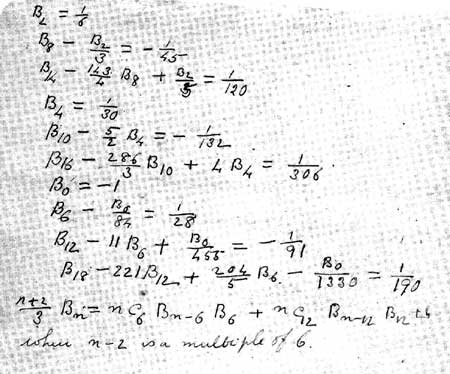 B₂ = 1/6
B₈ − B₂/3 = −1/45
B₁₄ − 143/4 B₈ + B₂/5 = 1/120
B₄ = 1/30
B₁₀ − 5/2 B₄ = −1/132
B₁₆ − 286/3 B₁₀ + 4 B₄ = 1/306
B₀ = −1
B₆ − B₀/84 = 1/28
B₁₂ − 11 B₆ + B₀/455 = −1/91
B₁₈ − 221 B₁₂ + 204/5 B₆ − B₀/1330 = 1/190
n+2/3 Bₙ = n C₆ Bₙ₋₆ B₆ + n C₁₂ Bₙ₋₁₂ B₁₂ + &
when n−2 is a multiple of 6.